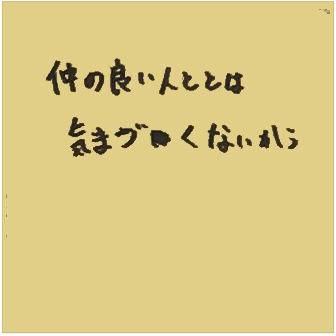 仲の良い人ととは
気まづくないから